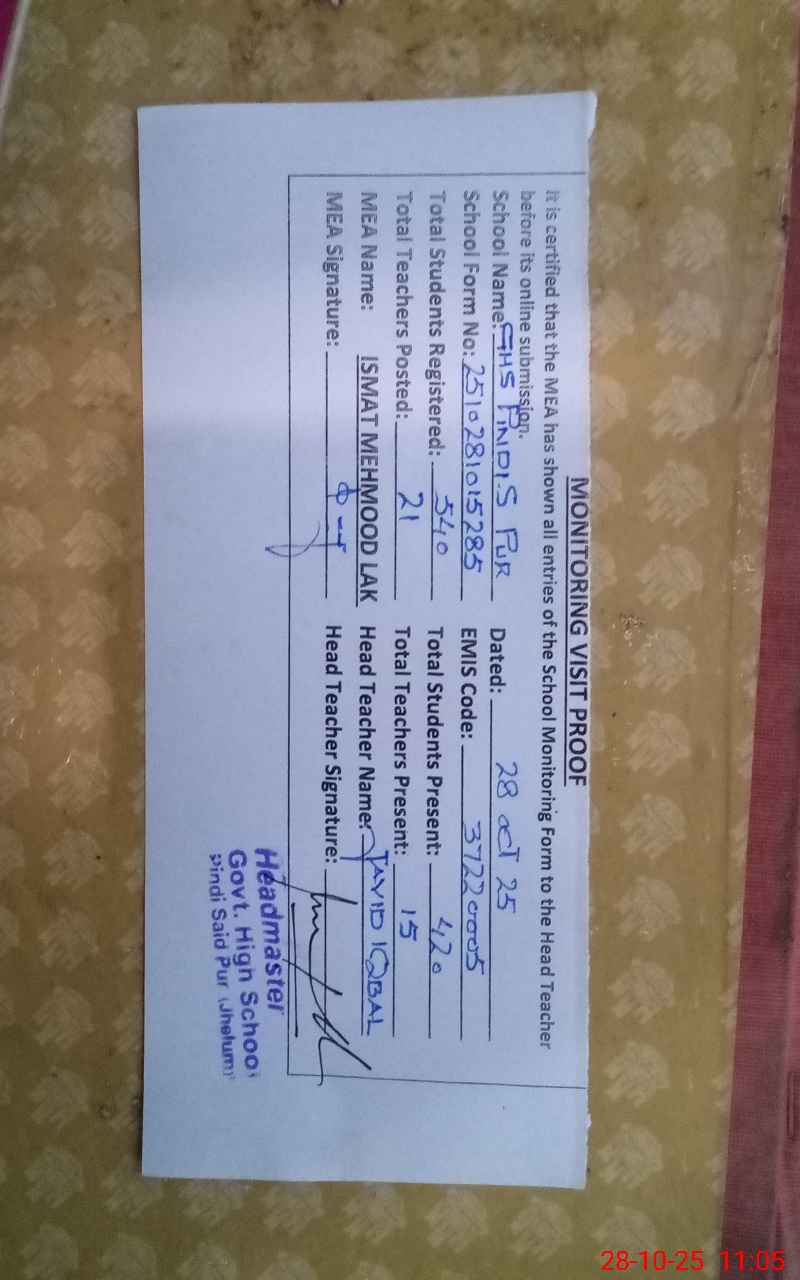 MONITORING VISIT PROOF
It is certified that the MEA has shown all entries of the School Monitoring Form to the Head Teacher
before its online submission.
School Name: GHS PINDI S PUR Dated: 28 OCT 25
School Form No: 2510281015285 EMIS Code: 37220005
Total Students Registered: 540 Total Students Present: 420
Total Teachers Posted: 21 Total Teachers Present: 15
MEA Name: ISMAT MEHMOOD LAK Head Teacher Name: JAVID IQBAL
MEA Signature: Head Teacher Signature:
Headmaster
Govt. High School
Pindi Said Pur (Jhelum)
28-10-25 11:05